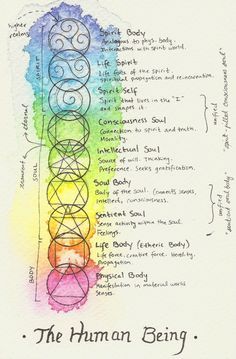 higher
realms
Spirit Body
Analogous to phys. body.
Interactions with spirit world.
SPIRIT
Life Spirit
Life folks of the spirit
Spiritual propagation and re-incarnation.
Spirit Self
Spirit that lives in the "I"
and shapes it.
eternal
Consciousness Soul
Connection to spirit and truth.
Morality.
unified
"soul-filled consciousness soul"
SOUL
Intellectual Soul
Source of will. Thinking.
Preference. Seeks gratification.
Soul Body
Body of the soul. Connects senses,
intellect, consciousness.
Sentient Soul
Sense activity within the soul.
Feelings.
unified
"sentient soul body"
Life Body (Etheric Body)
Life force, creative force. Heredity.
Propagation.
BODY
Physical Body
Manifestation in material world
Senses.
· The Human Being ·